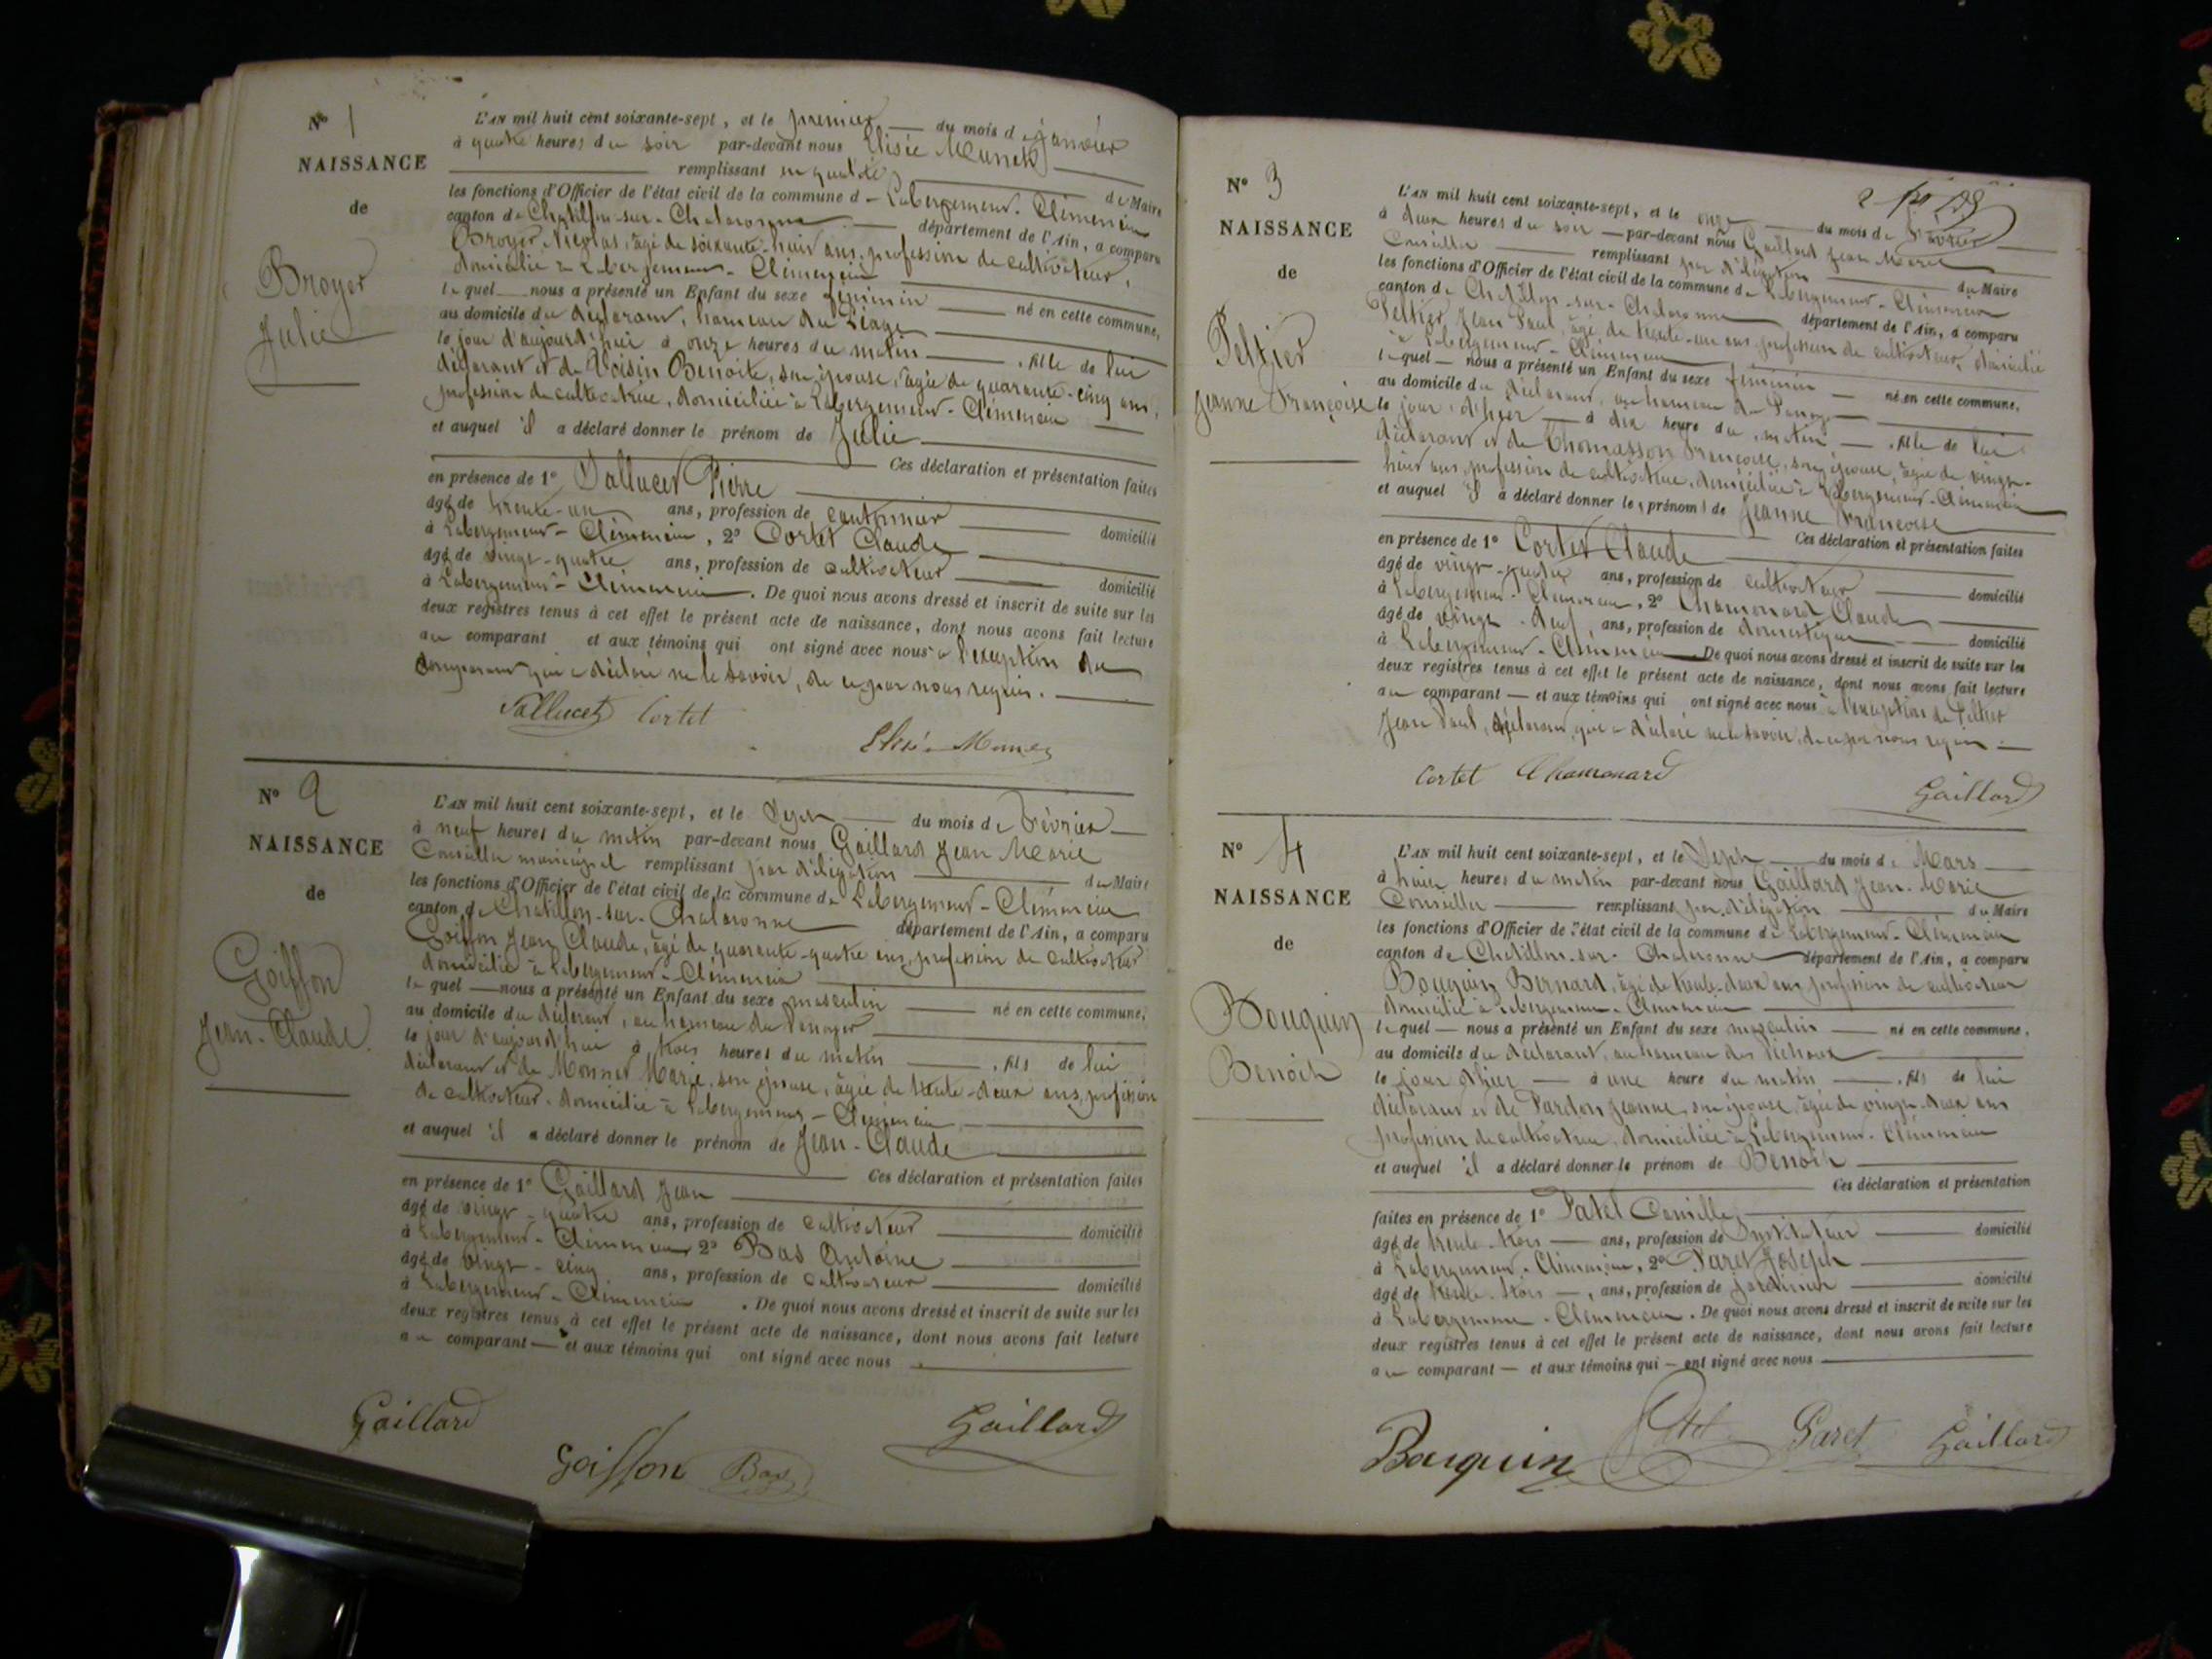 N° 1
NAISSANCE
de
Broyer
Julie
L'AN mil huit cent soixante-sept, et le premier du mois de janvier
à quatre heures du soir par-devant nous Elisée
remplissant en qualité du Maire
les fonctions d'Officier de l'état civil de la commune de Labergement-Clémencia
canton de Châtillon-sur-Chalaronne département de l'Ain, a comparu
Broyer Nicolas, âgé de soixante-huit ans, profession de cultivateur,
domicilié à Labergement-Clémencia
lequel nous a présenté un Enfant du sexe féminin né en cette commune,
au domicile du déclarant, hameau du Liage
le jour d'aujourd'hui à onze heures du matin, fille de lui
déclarant et de Voisin Benoite, son épouse, âgée de quarante-cinq ans,
profession de cultivatrice, domiciliée à Labergement-Clémencia
et auquel il a déclaré donner le prénom de Julie
Ces déclaration et présentation faites
en présence de 1° Sallucet Pierre
âgé de trente-un ans, profession de cantonnier domicilié
à Labergement-Clémencia, 2° Cortet Claude
âgé de vingt-quatre ans, profession de cultivateur domicilié
à Labergement-Clémencia. De quoi nous avons dressé et inscrit de suite sur les
deux registres tenus à cet effet le présent acte de naissance, dont nous avons fait lecture
au comparant et aux témoins qui ont signé avec nous à l'exception du
comparant qui a déclaré ne le savoir, de ce par nous requis.
Sallucet Cortet
Elisée
N° 2
NAISSANCE
de
Goiffon
Jean-Claude
L'AN mil huit cent soixante-sept, et le Sept du mois de Février
à neuf heures du matin par-devant nous Gaillard Jean Marie
Conseiller municipal remplissant par délégation du Maire
les fonctions d'Officier de l'état civil de la commune de Labergement-Clémencia
canton de Châtillon-sur-Chalaronne département de l'Ain, a comparu
Goiffon Jean Claude, âgé de quarante-quatre ans, profession de cultivateur
domicilié à Labergement-Clémencia
lequel nous a présenté un Enfant du sexe masculin né en cette commune,
au domicile du déclarant, au hameau du
le jour d'aujourd'hui à trois heures du matin, fils de lui
déclarant et de Monnet Marie, son épouse, âgée de trente-deux ans, profession
de cultivateur, domicilié à Labergement-Clémencia,
et auquel il a déclaré donner le prénom de Jean-Claude
Ces déclaration et présentation faites
en présence de 1° Gaillard Jean
âgé de vingt-quatre ans, profession de cultivateur domicilié
à Labergement-Clémencia 2° Bas Antoine
âgé de vingt-cinq ans, profession de cultivateur domicilié
à Labergement-Clémencia. De quoi nous avons dressé et inscrit de suite sur les
deux registres tenus à cet effet le présent acte de naissance, dont nous avons fait lecture
au comparant et aux témoins qui ont signé avec nous
Gaillard Gaillard
Goiffon Bas
N° 3
NAISSANCE
de
Peltier
Jeanne Françoise
L'AN mil huit cent soixante-sept, et le onze du mois de Février
à deux heures du soir par-devant nous Gaillard Jean Marie
Conseiller remplissant par délégation du Maire
les fonctions d'Officier de l'état civil de la commune de Labergement-Clémencia
canton de Châtillon-sur-Chalaronne département de l'Ain, a comparu
Peltier Jean Paul, âgé de trente-un ans, profession de cultivateur, domicilié
à Labergement-Clémencia
lequel nous a présenté un Enfant du sexe féminin né en cette commune,
au domicile du déclarant, au hameau de
le jour d'hier à dix heure du matin, fille de lui
déclarant et de Thomasson Françoise, son épouse, âgée de vingt-
huit ans, profession de cultivatrice, domiciliée à Labergement-Clémencia
et auquel il a déclaré donner les prénoms de Jeanne Françoise
Ces déclaration et présentation faites
en présence de 1° Cortet Claude
âgé de vingt-quatre ans, profession de cultivateur domicilié
à Labergement-Clémencia, 2° Chamonard Claude
âgé de vingt-neuf ans, profession de domestique domicilié
à Labergement-Clémencia De quoi nous avons dressé et inscrit de suite sur les
deux registres tenus à cet effet le présent acte de naissance, dont nous avons fait lecture
au comparant et aux témoins qui ont signé avec nous à l'exception de Peltier
Jean Paul, déclarant, qui a déclaré ne le savoir, de ce par nous requis
Cortet Chamonard
Gaillard
N° 4
NAISSANCE
de
Bouquin
Benoit
L'AN mil huit cent soixante-sept, et le Sept du mois de Mars
à huit heures du matin par-devant nous Gaillard Jean-Marie
Conseiller remplissant par délégation du Maire
les fonctions d'Officier de l'état civil de la commune de Labergement-Clémencia
canton de Châtillon-sur-Chalaronne département de l'Ain, a comparu
Bouquin Bernard, âgé de trente-deux ans profession de cultivateur
domicilié à Labergement-Clémencia
lequel nous a présenté un Enfant du sexe masculin né en cette commune,
au domicile du déclarant, au hameau des
le jour d'hier à une heure du matin, fils de lui
déclarant et de Pardon Jeanne, son épouse, âgée de vingt-deux ans
profession de cultivatrice, domiciliée à Labergement-Clémencia
et auquel il a déclaré donner le prénom de Benoit
Ces déclaration et présentation
faites en présence de 1° Patel Camille
âgé de trente-trois ans, profession de Instituteur domicilié
à Labergement-Clémencia, 2° Paret Joseph
âgé de trente-trois, ans, profession de jardinier domicilié
à Labergement-Clémencia. De quoi nous avons dressé et inscrit de suite sur les
deux registres tenus à cet effet le présent acte de naissance, dont nous avons fait lecture
au comparant et aux témoins qui ont signé avec nous
Bouquin Paret Gaillard